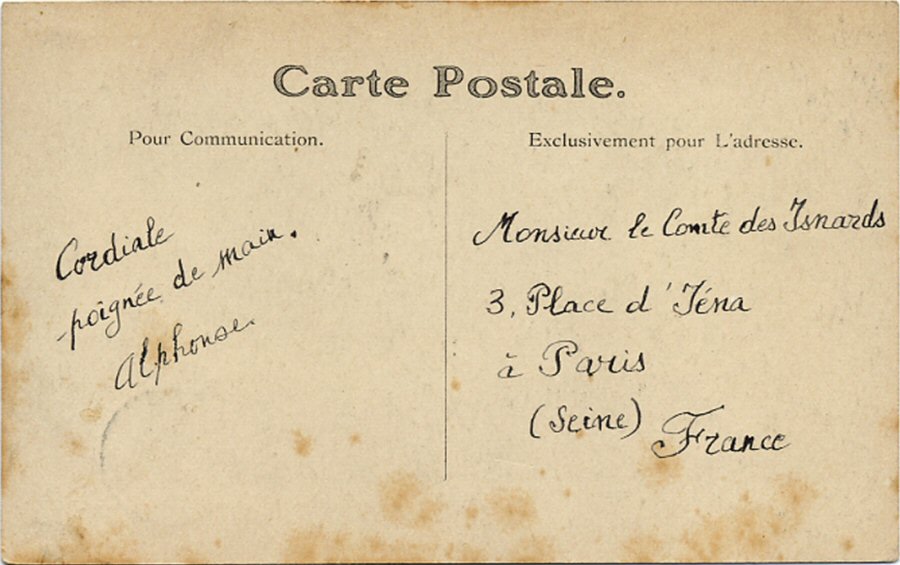 Carte Postale.
Pour Communication.
Exclusivement pour L'adresse.
Cordiale
poignée de main.
Alphonse.
Monsieur le Comte des Isnards
3, Place d'Iéna
à Paris
(Seine)
France